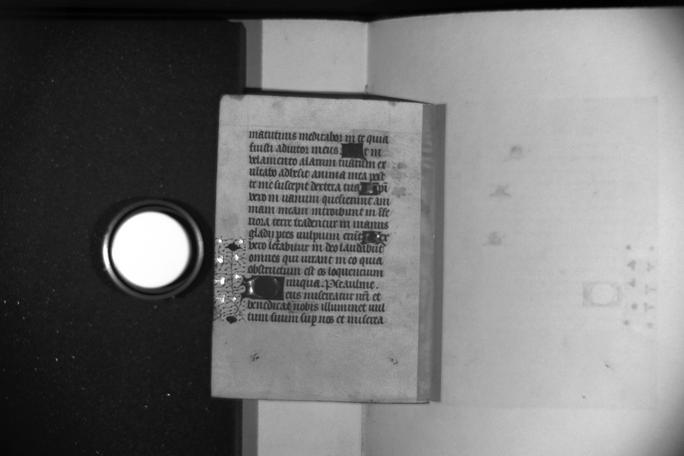 matutinis meditabor in te quia
fuisti adiutor meus Et in
velamento alarum tuarum ex
ultabo adhesit anima mea post
te me suscepit dextera tua Ipi
vero in vanum quesierunt ani
mam meam introibunt in infe
riora terre tradentur in manus
gladii ptes vulpium erunt Rex
vero letabitur in deo laudabunt
omnes qui iurant in eo quia
obstructum est os loquencium
iniqua. Psalmus.
Deus misereatur nri et
benedicat nobis illuminet vul
tum suum sup nos et miserea